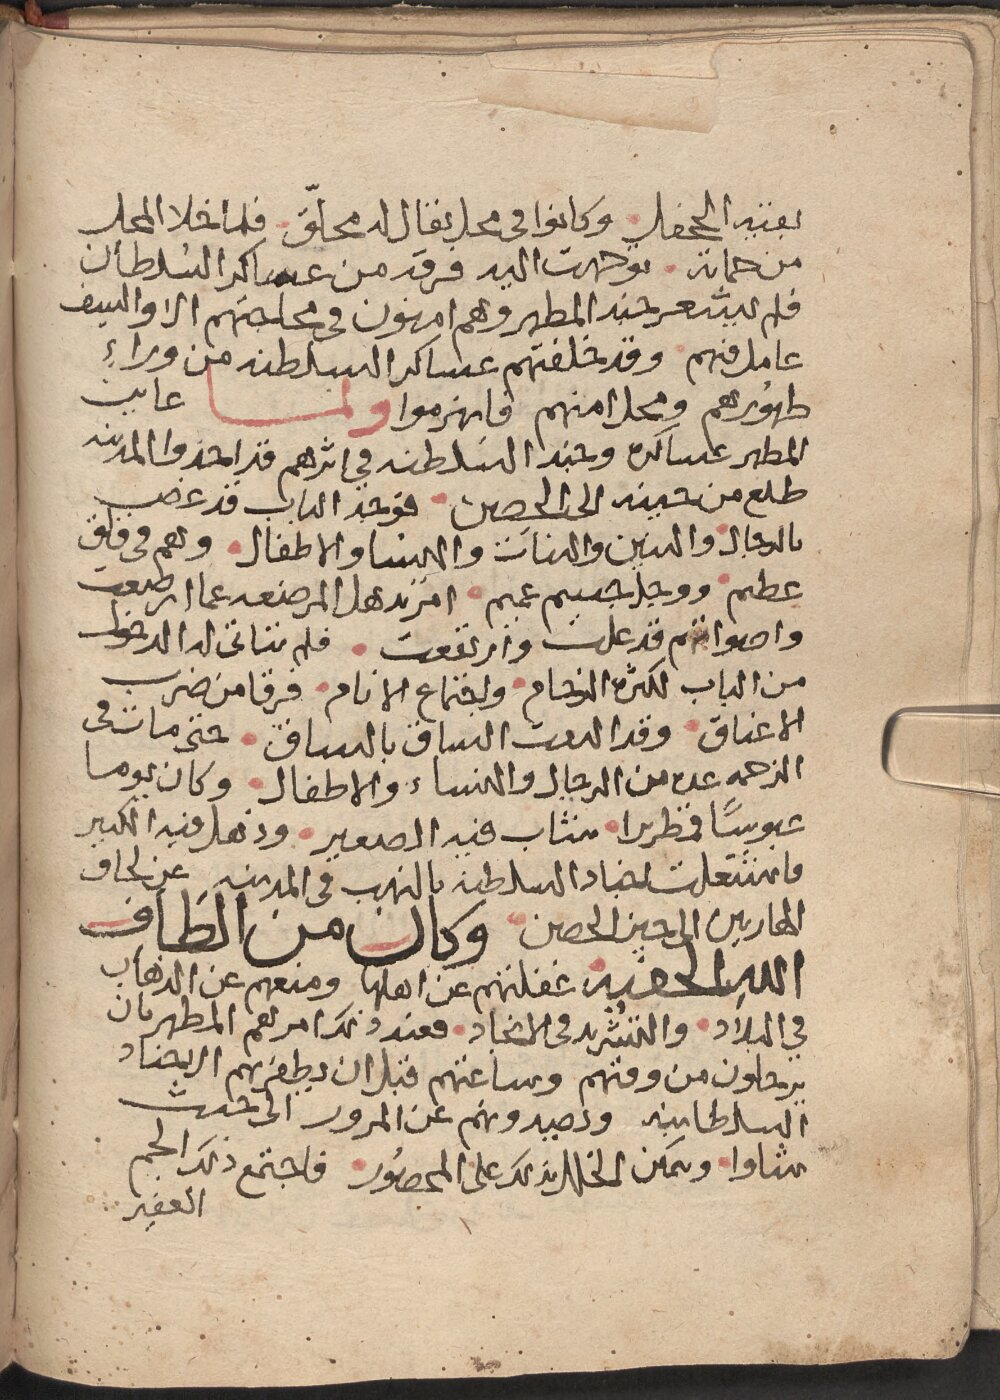 بقيته الجحفل وكانوا في محل يقال له محلّق فلما خلا المحل
من حماته توجهت اليه فرقه من عساكر السلطان
فلم يشعر جند المطهر وهم امنون في محاجنهم الا والسيف
عامل فيهم وقد خلفتهم عساكر السلطنه من وراء
ظهورهم ومحل امنهم فانهزموا ولما عاين
المطهر عساكره وجند السلطنه في اثرهم قد اخذوا المدينه
طلع من حينه الى الحصن فوجد الباب قد غص
بالرجال والبنين والبنات والنسا والاطفال وهم في قلق
عظيم ووجل جسيم عميم اذ تذهل المرضعه عما ارضعت
واصواتهم قد علت وارتفعت فلم يتاتى له الدخول
من الباب لكثرة الزحام واجتماع الانام فرقا من ضرب
الاعناق وقد التفت الساق بالساق حتى مات في
الزحمه عده من الرجال والنساء والاطفال وكان يوما
عبوسًا قمطريرا شاب فيه الصغير وذهل فيه الكبير
فاشتغلت اجناد السلطنه بالنهب في المدينه عن لحاق
الهاربين الى حين الحصن وكان من الطاف
الله الخفيه غفلتهم عن اهلها ومنعهم عن الذهاب
في البلاد والتشريد في الانجاد فعند ذلك امرهم المطهر بان
يرحلون من وقتهم وساعتهم قبل ان يظفر بهم الاجناد
السلطانيه ويصدونهم عن المرور الى حيث
شاوا ويمكن الخلل بذلك على المحصور فاجتمع ذلك الجم
الغفير